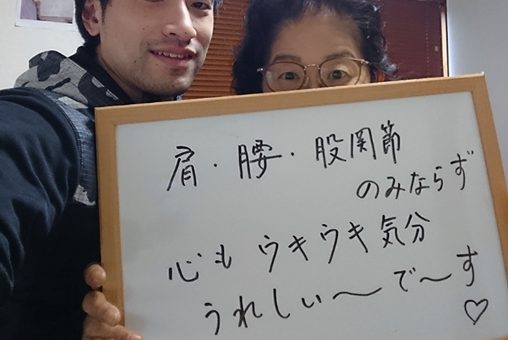 肩・腰・股関節
のみならず
心も ウキウキ気分
うれしい〜で〜す
♡